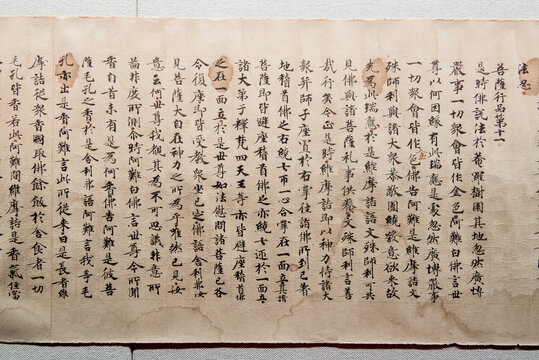 法忍
菩薩行品第十一
是時佛說法於菴羅樹園其地忽然廣博
嚴事一切眾會皆作金色阿難白佛言世
尊以何因緣有此瑞應是處忽然廣博嚴事
一切眾會皆作金色佛告阿難是維摩詰文
殊師利與諸大眾恭敬圍繞發意欲來故
先為此瑞應於是維摩詰語文殊師利可共
見佛與諸菩薩礼事供養文殊師利言善
哉行矣今正是時維摩詰即以神力持諸大
眾并師子座置於右掌往詣佛所到已著
地稽首佛足右繞七帀一心合掌在一面立其諸
菩薩即皆避座稽首佛足亦繞七帀於一面立
諸大弟子釋梵四天王等亦皆避座稽首佛
足在一面立於是世尊如法慰問諸菩薩已各
令復座即皆受教眾坐已定佛語舍利弗汝
見菩薩大士自在神力之所為乎唯然已見汝
意云何世尊我覩其為不可思議非意所
圖非度所測尒時阿難白佛言世尊今所聞
香自昔未有是為何香佛告阿難是彼菩
薩毛孔之香於是舍利弗語阿難言我等毛
孔亦出是香阿難言此所從來曰是長者維
摩詰從眾香國取佛餘飯於舍食者一切
毛孔皆香若此阿難問維摩詰是香氣住當